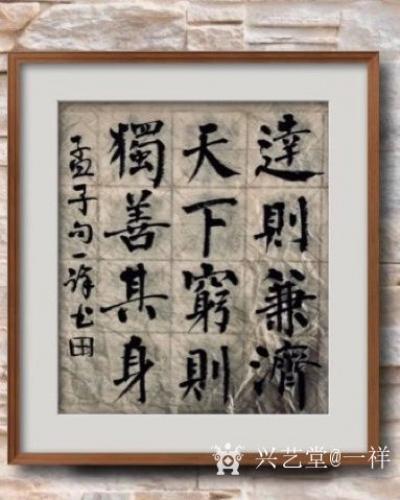 達則兼濟
天下窮則
獨善其身
孟子句一祥书
兴艺堂@一祥